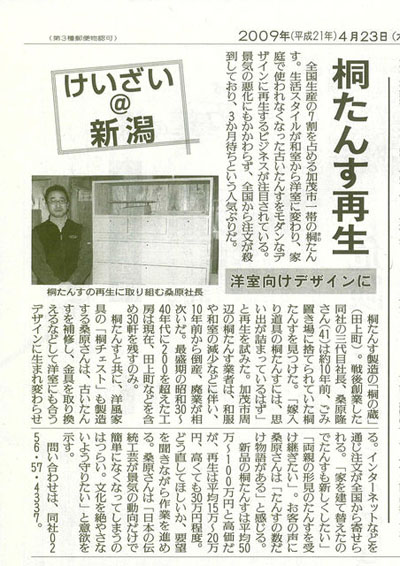 (第3種郵便物認可)
2009年(平成21年)4月23日
けいざい
@
新潟
桐たんす再生
洋室向けデザインに
全国生産の7割を占める加茂市一帯の桐たん
す。生活スタイルが和室から洋室に変わり、家
庭で使われなくなった古いたんすをモダンなデ
ザインに再生するビジネスが注目されている。
景気の悪化にもかかわらず、全国から注文が殺
到しており、3か月待ちという人気ぶりだ。
桐たんすの再生に取り組む桑原社長
桐たんす製造の「桐の蔵」
(田上町)。戦後創業した
同社の三代目社長、桑原隆
さん(41)は約10年前、ごみ
置き場に捨てられていた桐
たんすを見つけた。「嫁入
り道具の桐たんすには、思
い出が詰まっているはず」
と再生を試みた。加茂市周
辺の桐たんす業者は、和服
や和室の減少などに伴い、
10年前から倒産、廃業が相
次いだ。最盛期の昭和30〜
40年代に200を超えた工
房は現在、田上町などを含
め30軒を残すのみ。
桐たんすと共に、洋風家
具の「桐チェスト」も製造
する桑原さんは、古いたん
すを補修し、金具を取り換
えるなどして洋室にも合う
デザインに生まれ変わらせ
る。インターネットなどを
通じ注文が全国から寄せら
れる。「家を建て替えたの
でたんすも新しくしたい」
「両親の形見のたんすを受
け継ぎたい」。お客の声に
桑原さんは「たんすの数だ
け物語がある」と感じる。
新品の桐たんすは平均50
万〜100万円と高価だ
が、再生は平均15万〜20万
円、高くても30万円程度。
どう直してほしいか、要望
を聞きながら作業を進め
る。桑原さんは「日本の伝
統工芸が景気の動向だけで
簡単になくなってしまうの
はつらい。文化を絶やさな
いよう守りたい」と意欲を
示す。
問い合わせは、同社02
56・57・4337。